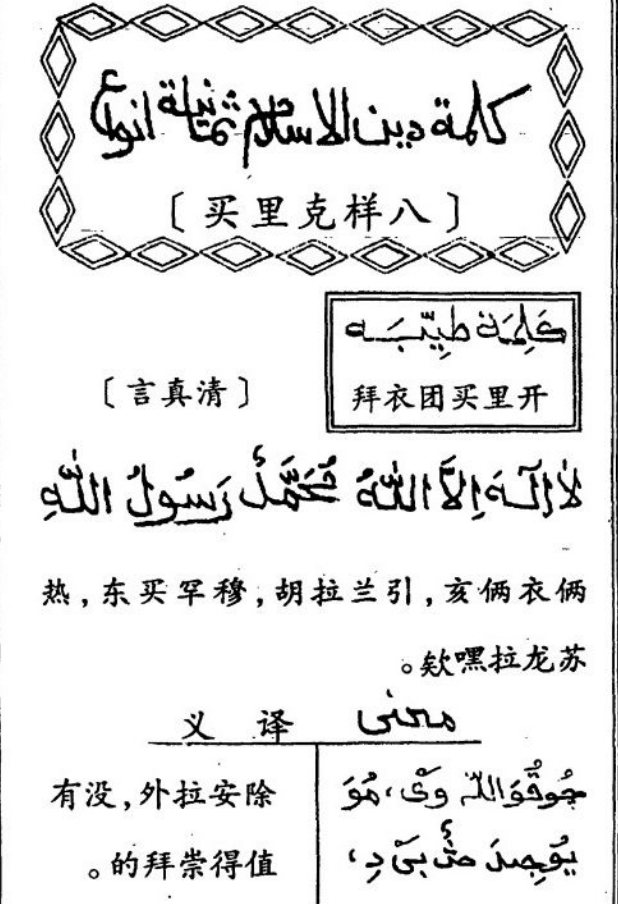 كلمة دين الاسلام ثمانية انواع
〔八样克里买〕
كَلِمَة طَيِّبَه
开里买团衣拜
〔清真言〕
لَا اِلٰهَ اِلَّا اللّٰهُ مُحَمَّدٌ رَسُولُ اللّٰهِ
俩衣俩亥,引兰拉胡,穆罕买东,热
苏龙拉嘿欸。
معنى 译义
除安拉外,没有
值得崇拜的。